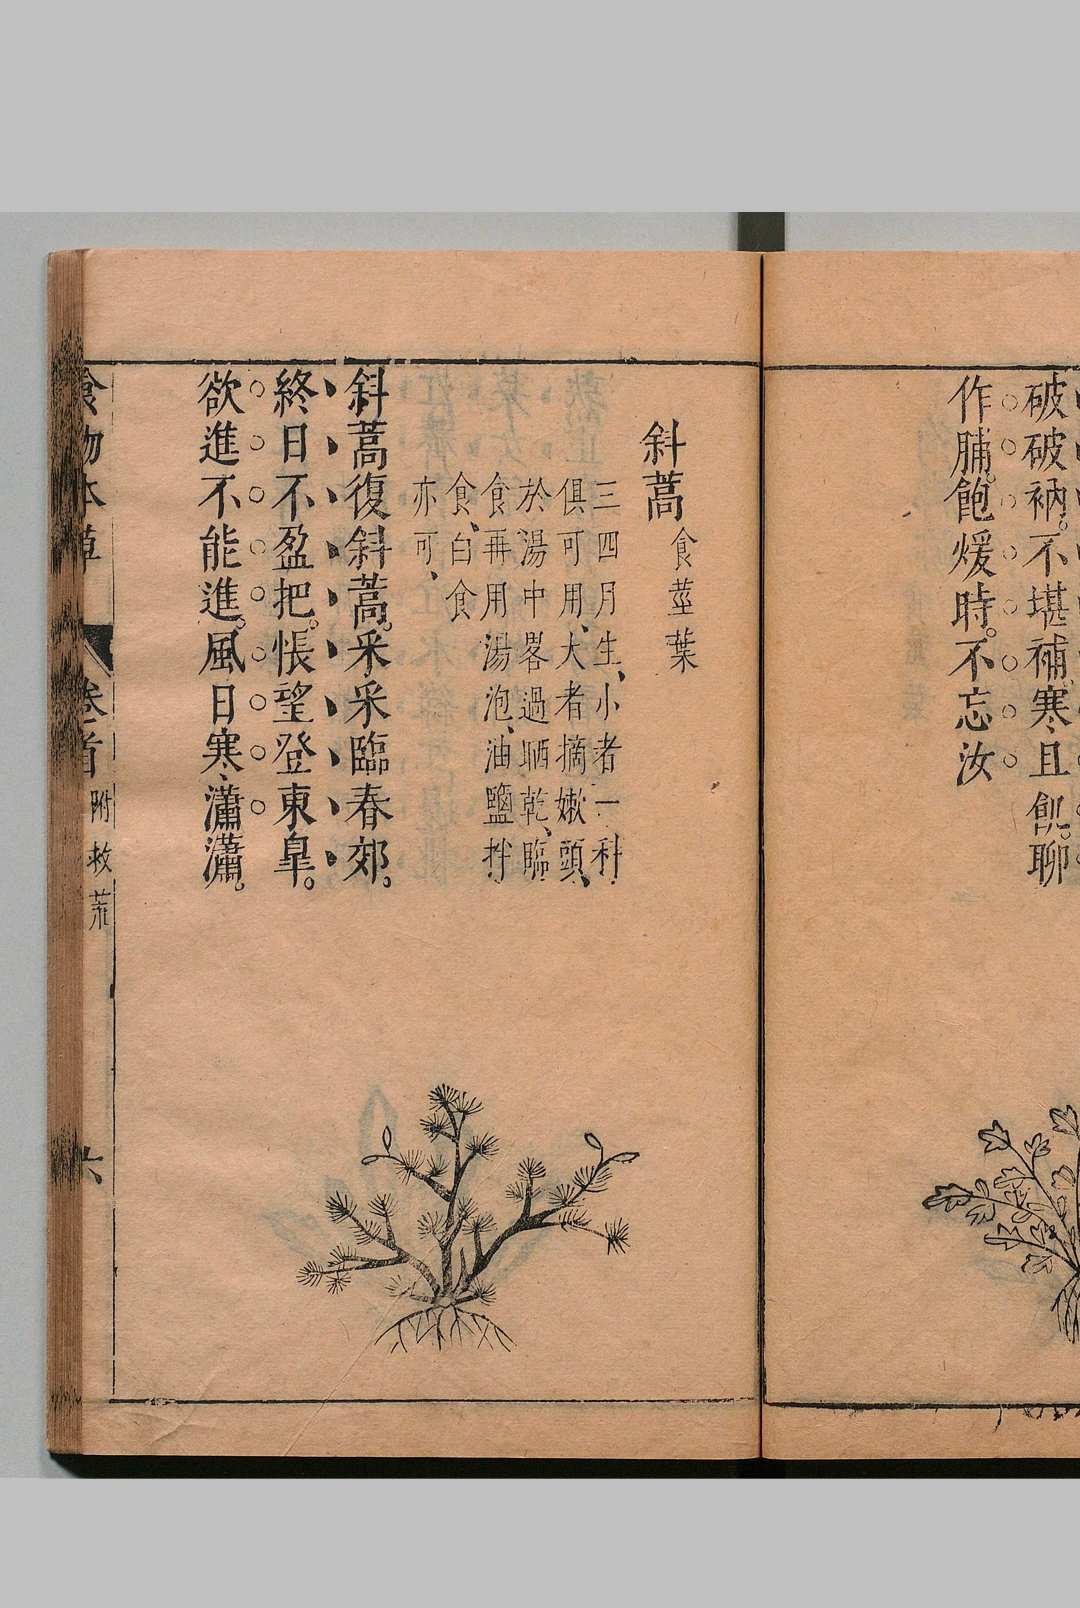 破破衲。不堪補。寒且創。聊
作脯。飽煖時。不忘汝
斜蒿食莖葉
三四月生、小者一科
俱可用、大者摘嫩頭、
於湯中畧過晒乾、臨
食再用湯泡、油鹽拌
食、白食
亦可、
斜蒿復斜蒿。采采臨春郊。
終日不盈把。悵望登東皐。
欲進不能進。風日寒瀟瀟。
食物本草 卷首 附救荒 六